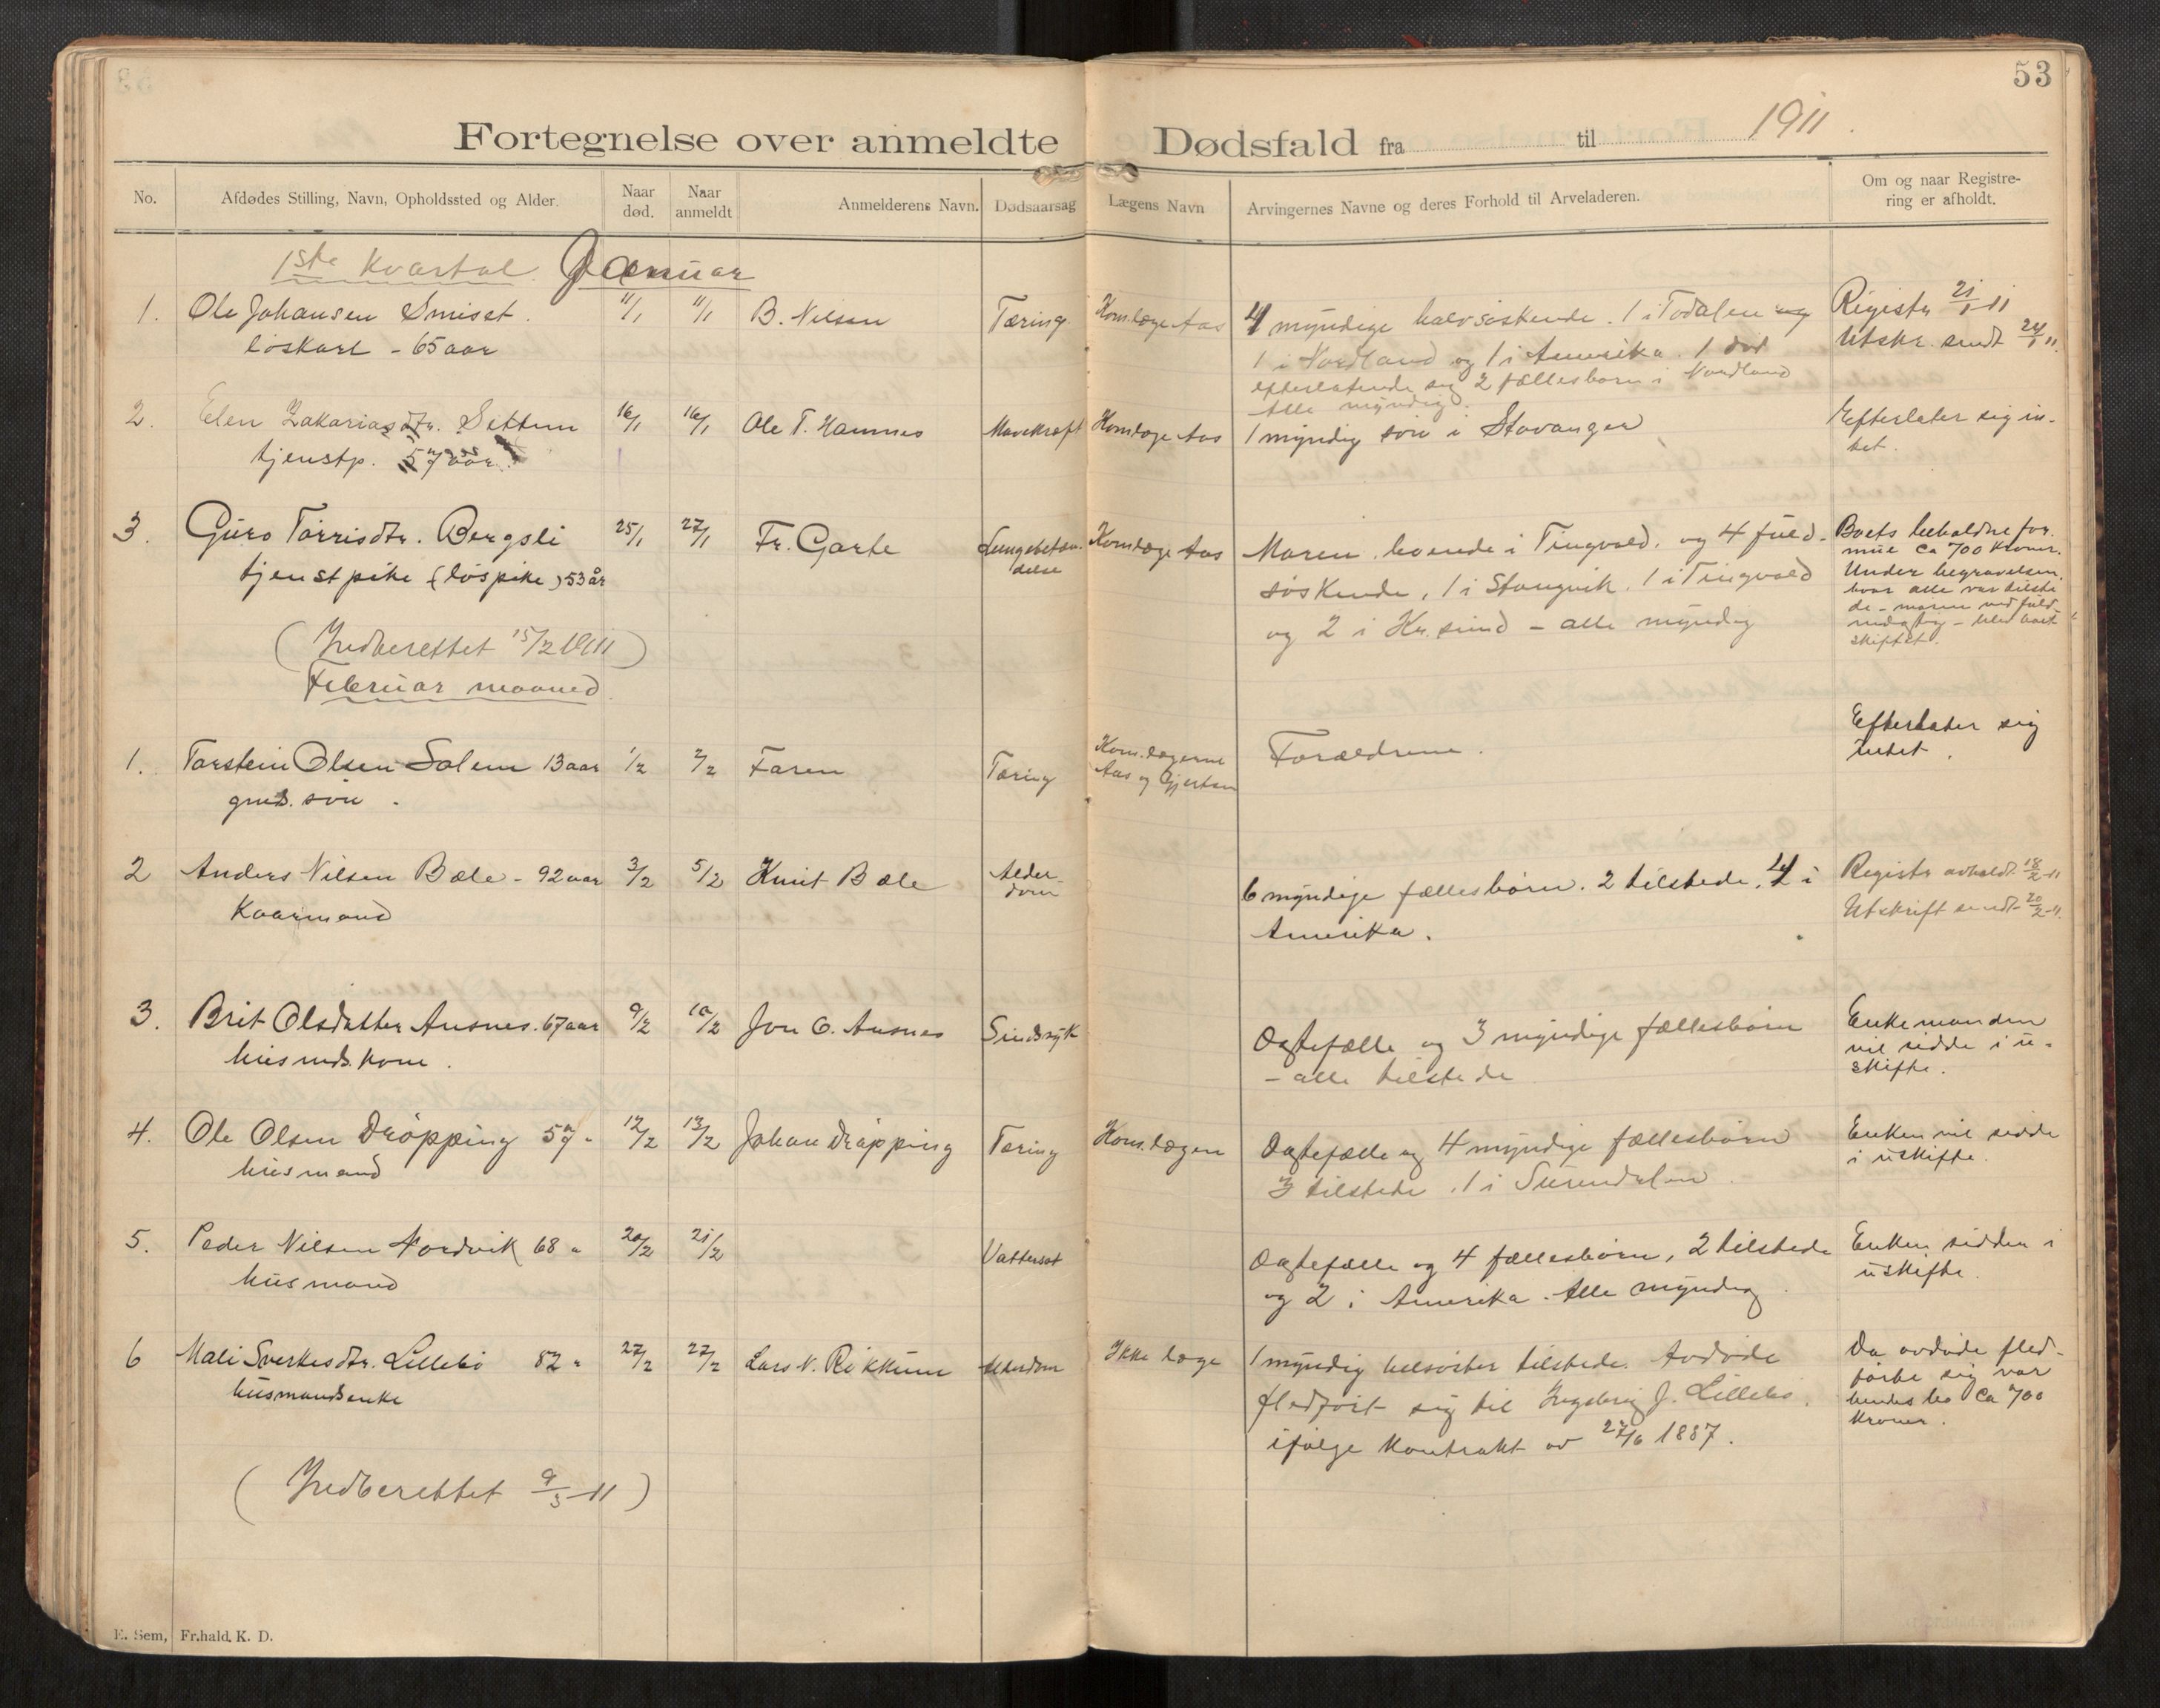 53
Fortegnelse over anmeldte Dødsfald fra til 1911.
No. Afdødes Stilling, Navn, Opholdssted og Alder. Naar død. Naar anmeldt Anmelderens Navn. Dødsaarsag Lægens Navn Arvingernes Navne og deres Forhold til Arveladeren. Om og naar Registrering er afholdt.
1ste Kvartal. Januar
1. Ole Johansen Smiset. 11/1 11/1 B. Nilsen Tæring Kom.læge Aas 4 myndige halvsøskende. 1 i Todalen og Registr 21/1-11
løskarl - 65 aar 1 i Nordland og 1 i Amerika. 1 død Utskr. sendt 24/1 11.
efterlatende sig 2 fællesbørn i Nordland
Alle myndig.
2. Elen Zakariasdtr. Settem 16/1 16/1 Ole T. Hamnes Mavekræft Komlæge Aas 1 myndig søn i Stavanger Efterlater sig in-
tjenstp. 57 aar. tet.
3. Guro Torrisdtr. Bergsli 25/1 27/1 Fr. Garte Lungebetæn- Komlæge Aas Moren boende i Tingvold. og 4 fuld- Boets beholdne for-
tjenstpike (løspike) 53 år delse søskende, 1 i Stangvik. 1 i Tingvold mue ca 700 Kroner.
og 2 i Kr.sund - alle myndig Under begravelsen,
hvor alle var tilste
de - moren ved fuld-
mægtig - blev boet
skiftet.
(Indberettet 15/2 1911)
Februar maaned
1. Torstein Olsen Solem 13 aar 1/2 2/2 Faren Tæring Kom.lægerne Forældrene. Efterlater sig
grmd. søn. Aas og Gjertsen intet.
2 Anders Nilsen Bæle - 92 aar 3/2 5/2 Knut Bæle Alder- 6 myndige fællesbørn. 2 tilstede, 4 i Registr avholdt 18/2-11
Kaarmand dom Amerika. Utskrift sendt 20/2-11.
3. Brit Olsdatter Ausnes. 67 aar 9/2 10/2 Jon O. Ausnes Sindssyk Ægtefælle og 3 myndige fællesbørn Enkemanden
husmds. kone. - alle tilstede vil sidde i u-
skifte.
4. Ole Olsen Drøpping 57 " 12/2 13/2 Johan Drøpping Tæring Kom.lægen Ægtefælle og 4 myndige fællesbørn Enken vil sidde
husmand 3 tilstede. 1 i Surendalen. i uskifte.
5. Peder Nilsen Nordvik 68 " 20/2 21/2 Vattersot Ægtefælle og 4 fællesbørn, 2 tilstede Enken sidder i
husmand og 2 i Amerika. Alle myndig uskifte.
6 Mali Sverkesdtr. Lillebø 82 " 27/2 27/2 Lars N. Røkkum Alderdom Ikke læge 1 myndig helsøster tilstede. Avdøde Da avdøde fled-
husmandsenke fledført sig til Ingebrig J. Lillebø. førte sig var
ifølge Kontrakt av 27/6 1887. hendes bo ca 700
kroner.
(Indberettet 9/3-11)
E. Sem, Fr.hald. K. D.